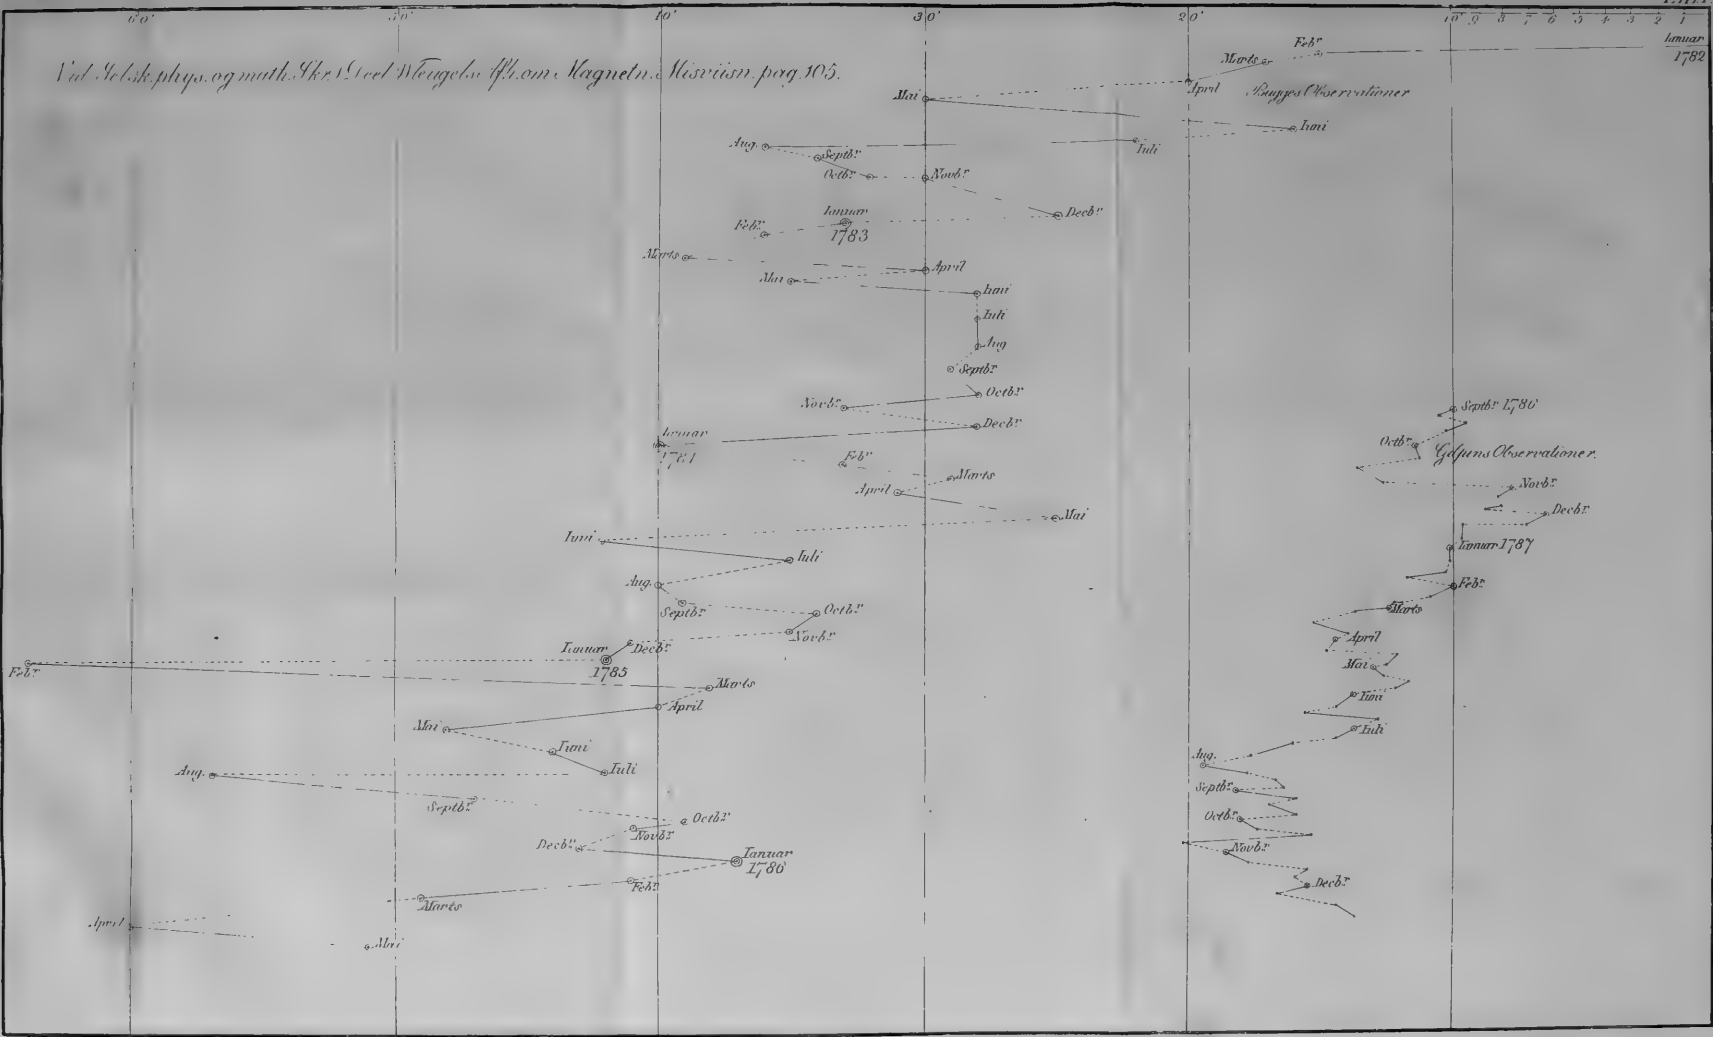 60' 50' 40' 30' 20' 10' 9 8 7 6 5 4 3 2 1
Vid. Selsk. phys. og math. Skr. 1ste Deel Wleugels Afh. om Magnetn. Misviisn. pag. 105.
Ianuar
1782
Febr
Marts
April
Bugges Observationer
Mai
Iuni
Iuli
Aug.
Septbr
Octbr
Novbr
Decbr
Ianuar
1783
Febr
Marts
April
Mai
Iuni
Iuli
Aug
Septbr
Octbr
Novbr
Decbr
Ianuar
1784
Febr
Marts
April
Mai
Iuni
Iuli
Aug.
Septbr
Octbr
Novbr
Decbr
Ianuar
1785
Febr
Marts
April
Mai
Iuni
Iuli
Aug.
Septbr
Octbr
Novbr
Decbr
Ianuar
1786
Febr
Marts
April
Mai
Septbr 1786
Octbr
Gilpins Observationer.
Novbr
Decbr
Ianuar 1787
Febr
Marts
April
Mai
Iuni
Iuli
Aug.
Septbr
Octbr
Novbr
Decbr